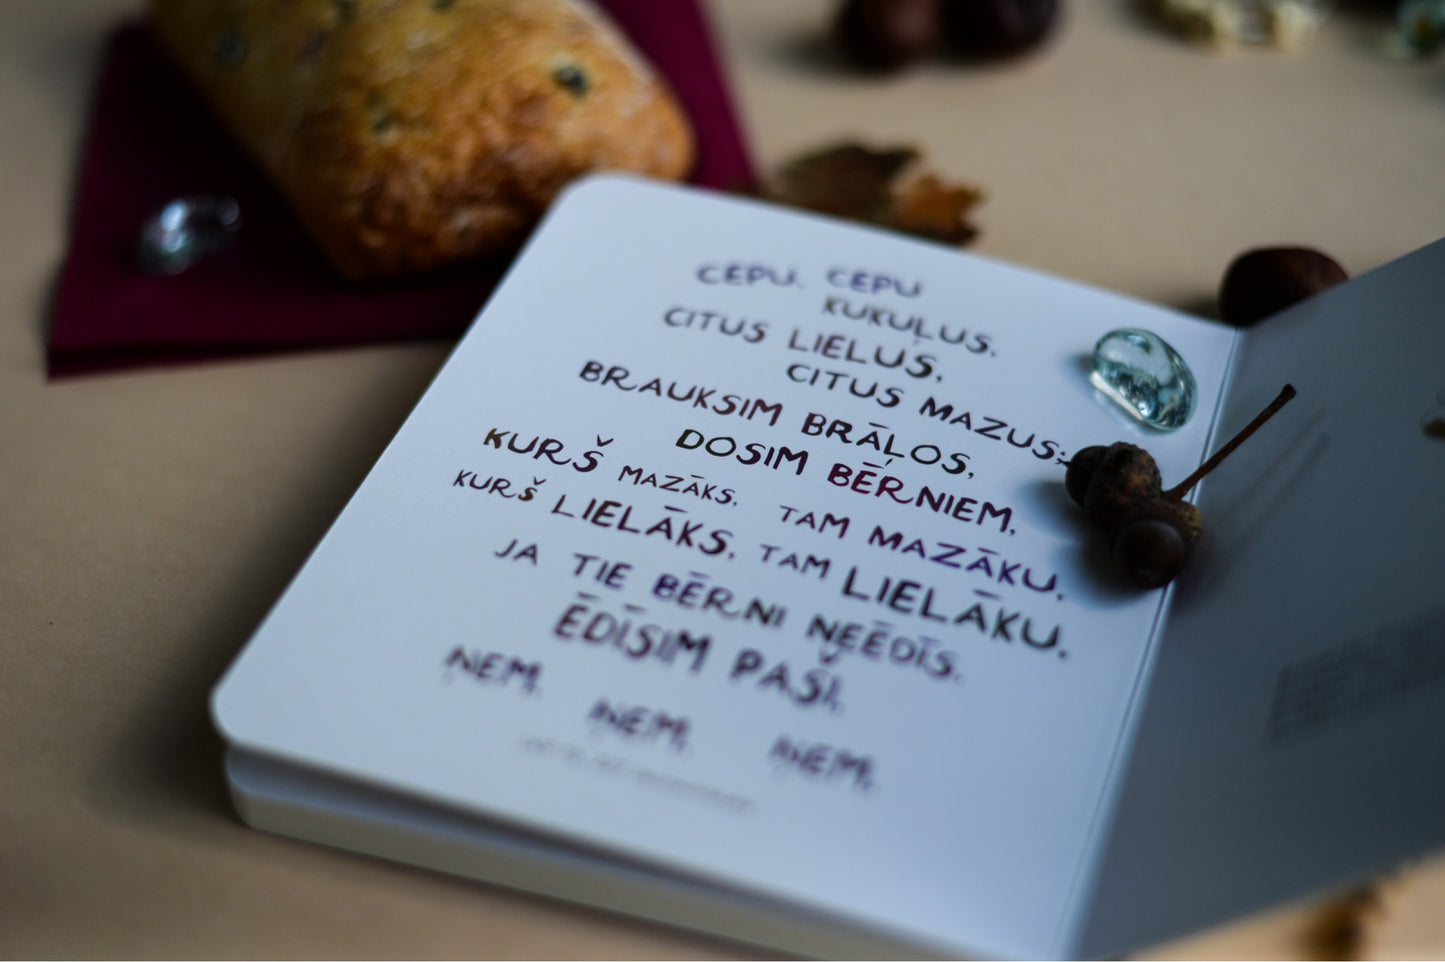 CEPU, CEPU
KUKUĻUS,
CITUS LIELUS,
CITUS MAZUS;
BRAUKSIM BRĀĻOS,
DOSIM BĒRNIEM,
KURŠ MAZĀKS, TAM MAZĀKU,
KURŠ LIELĀKS, TAM LIELĀKU.
JA TIE BĒRNI ŅEĒDĪS,
ĒDĪSIM PAŠI,
ŅEM, ŅEM, ŅEM.